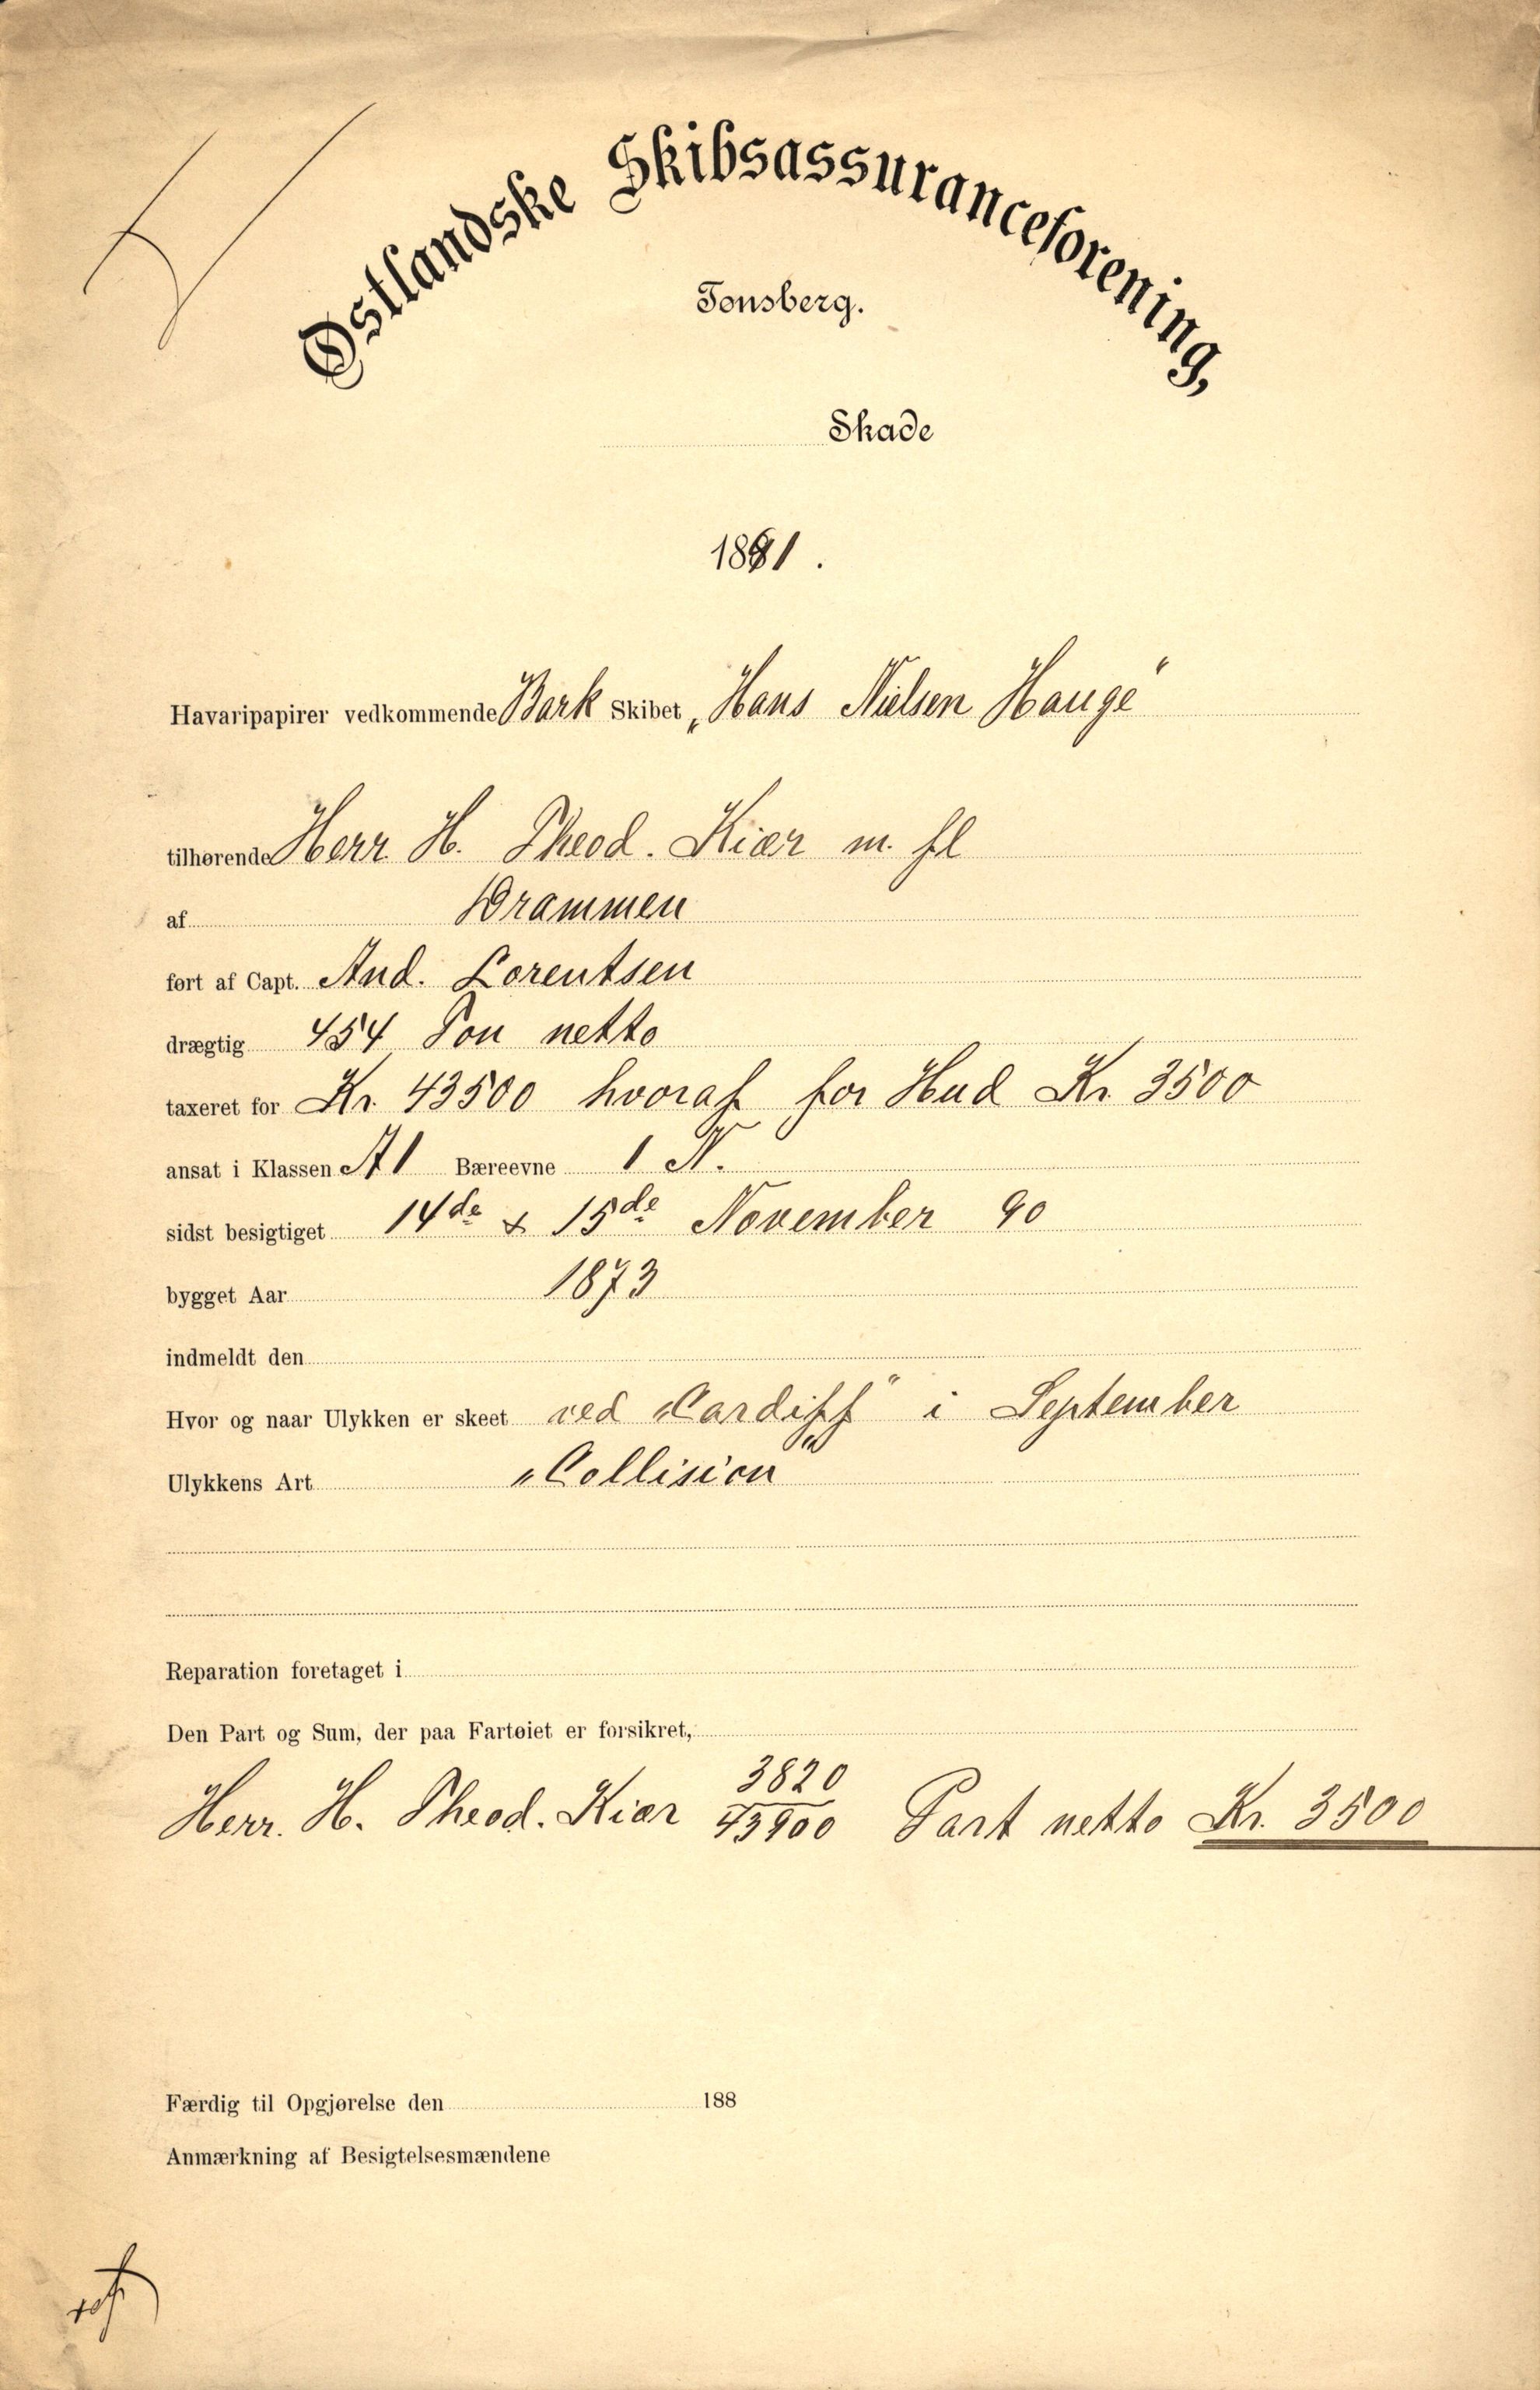 Østlandske Skibsassuranceforening,
Tønsberg.
Skade
1891.
Havaripapirer vedkommende Bark Skibet „Hans Nielsen Hauge“
tilhørende Herr H. Theod. Kiær m. fl
af Drammen
ført af Capt. And. Lorentsen
drægtig 454 Ton netto
taxeret for Kr. 43500 hvoraf for Hud Kr. 3500
ansat i Klassen A1 Bæreevne 1 N.
sidst besigtiget 14de & 15de November 90
bygget Aar 1873
indmeldt den
Hvor og naar Ulykken er skeet ved „Cardiff“ i September
Ulykkens Art „Collision“
Reparation foretaget i
Den Part og Sum, der paa Fartøiet er forsikret,
Herr. H. Theod. Kiær 3820/43900 Part netto Kr. 3500
Færdig til Opgjørelse den 188
Anmærkning af Besigtelsesmændene